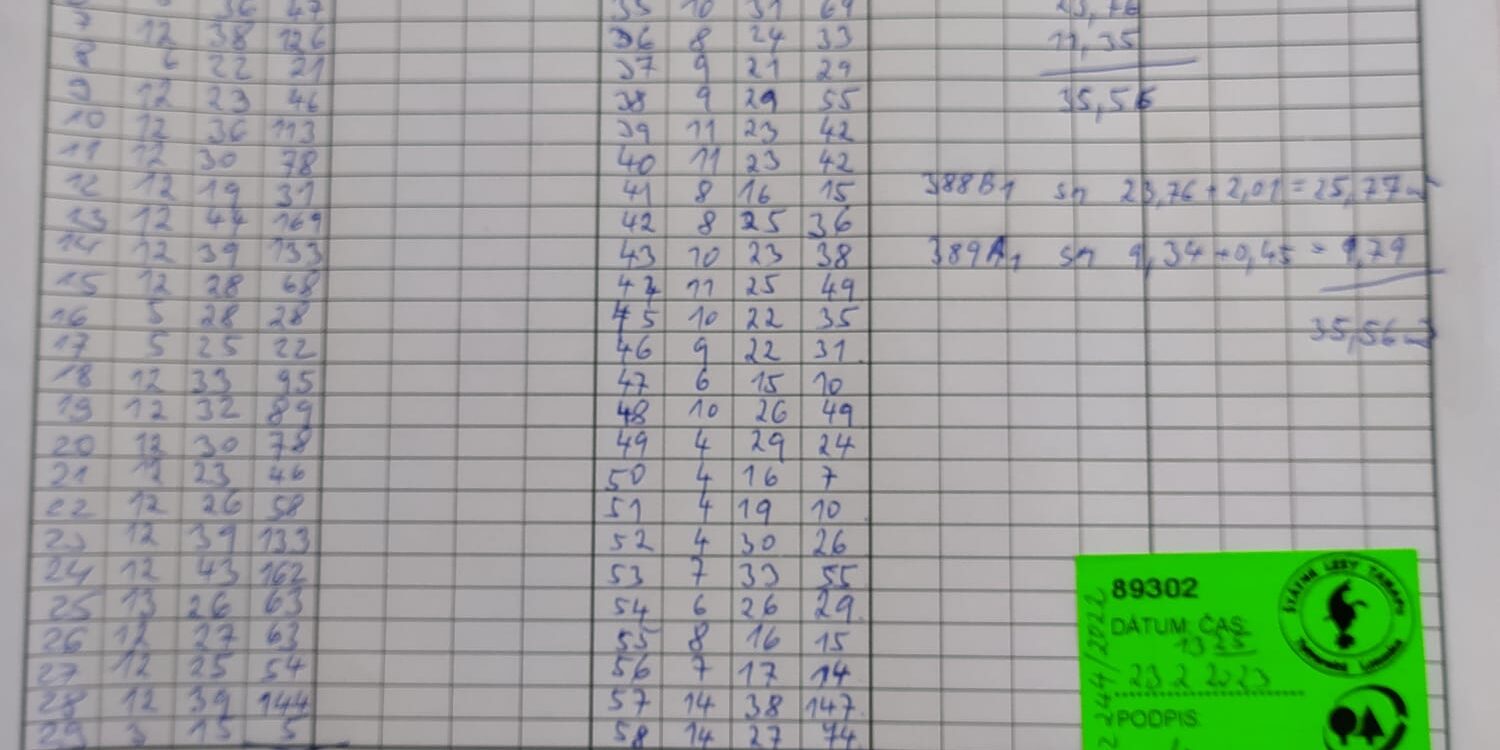 7 12 38 126
8 6 22 21
9 12 23 46
10 12 36 113
11 12 30 78
12 12 19 31
13 12 44 169
14 12 39 133
15 12 28 68
16 5 28 28
17 5 25 22
18 12 33 95
19 12 32 89
20 12 30 78
21 12 23 46
22 12 26 58
23 12 39 133
24 12 43 162
25 13 26 63
26 12 27 63
27 12 25 54
28 12 39 144
29 3 15 5
35 10 31 69
36 8 24 33
37 9 21 29
38 9 29 55
39 11 23 42
40 11 23 42
41 8 16 15
42 8 25 36
43 10 23 38
44 11 25 49
45 10 22 35
46 9 22 31
47 6 15 10
48 10 26 49
49 4 29 24
50 4 16 7
51 4 19 10
52 4 30 26
53 7 33 55
54 6 26 29
55 8 16 15
56 7 17 14
57 14 38 147
58 14 27 74
23,76
11,35
35,56
388B1 sm 23,76 + 2,01 = 25,77 m3
389A1 sm 9,34 + 0,45 = 9,79
35,56 m3
89302
DÁTUM, ČAS:
13 25
23 2 2023
PODPIS:
244/2022
ŠTÁTNE LESY TANAPU